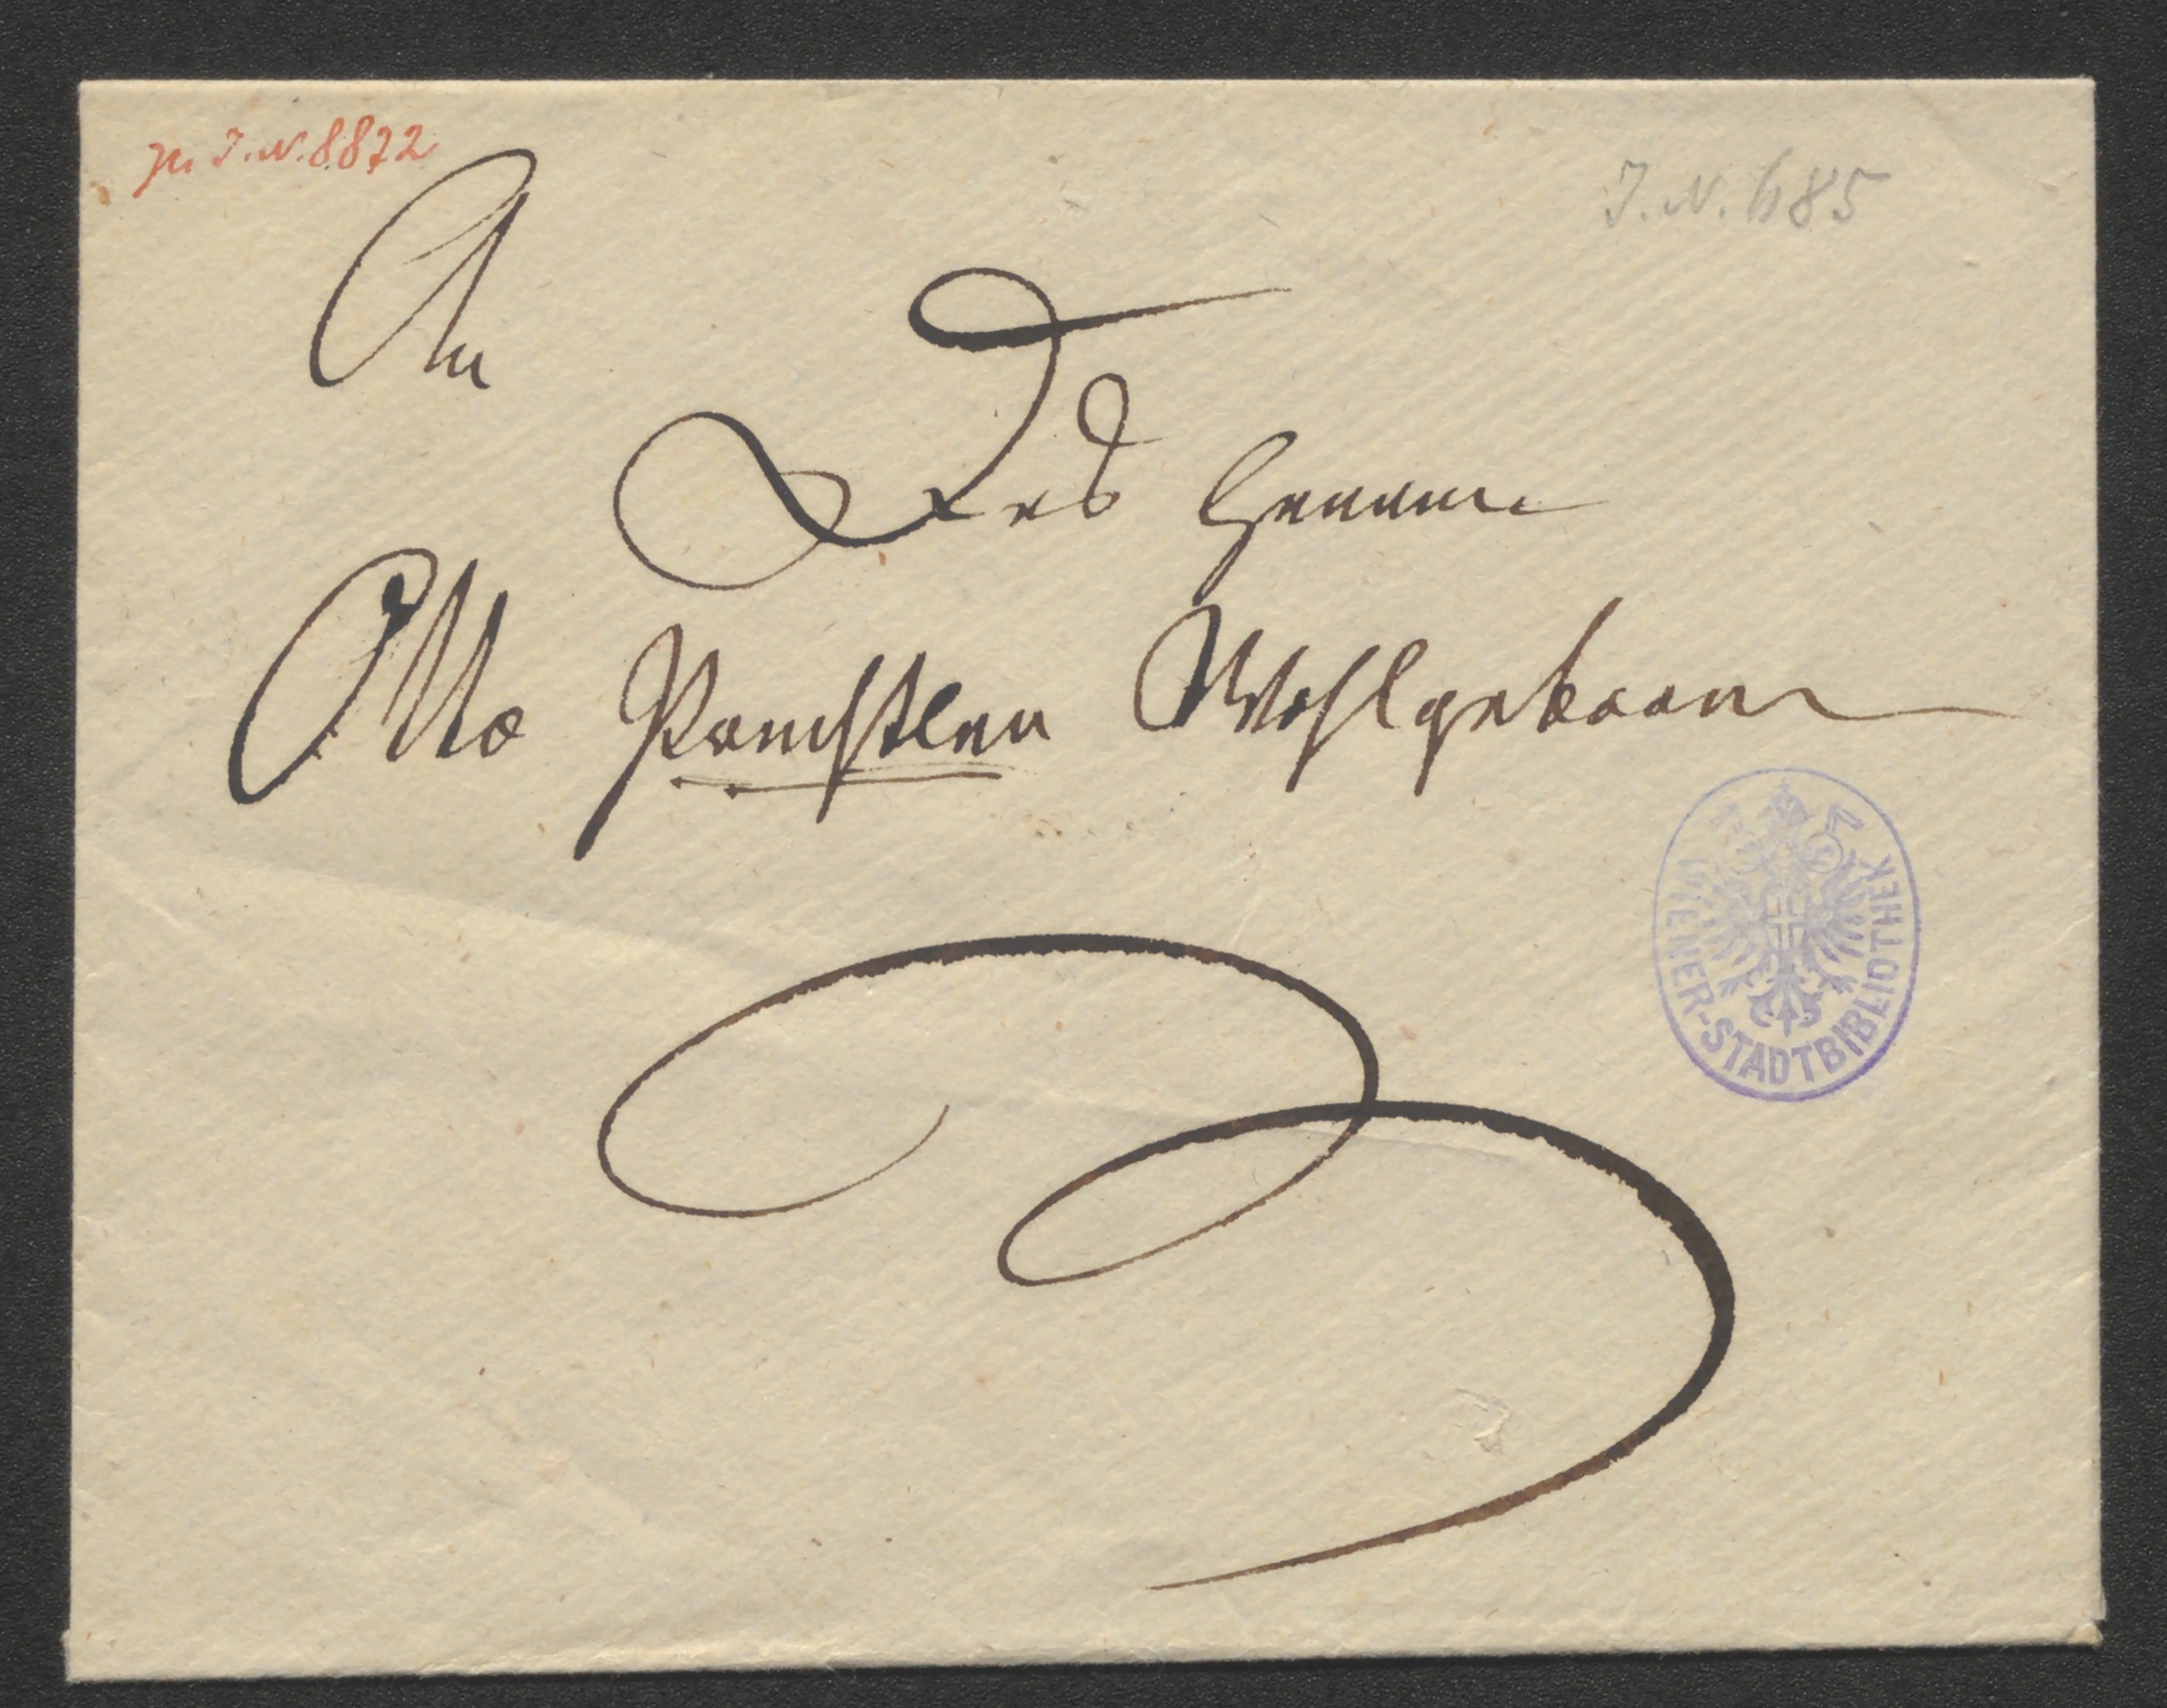 zu I.N. 8872
I.N. 685
An
Des Herrn
Otto Prechtler Wohlgeboren
WIENER-STADTBIBLIOTHEK